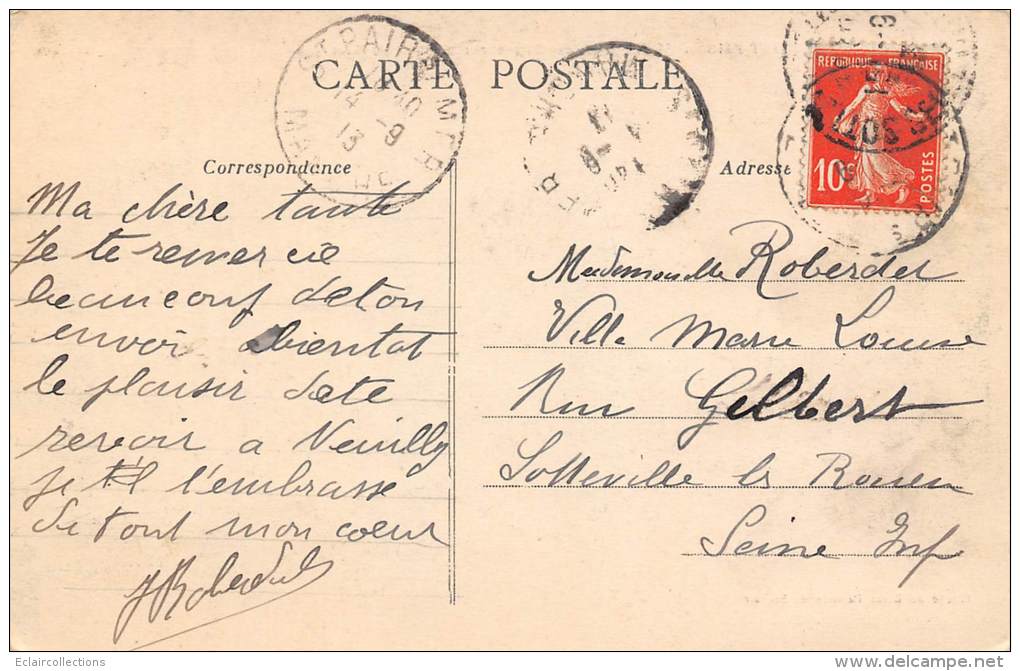 CARTE POSTALE
Correspondance
Adresse
REPUBLIQUE FRANÇAISE
10c
POSTES
Ma chère tante
Je te remercie
beaucoup de ton
envoi bientot
le plaisir de te
revoir a Neuilly
je t'embrasse
de tout mon coeur
J Roberdel
Mademoiselle Roberdel
Villa Marie Louise
Rue Gilbert
Sotteville les Rouen
Seine Inf
Eclaircollections